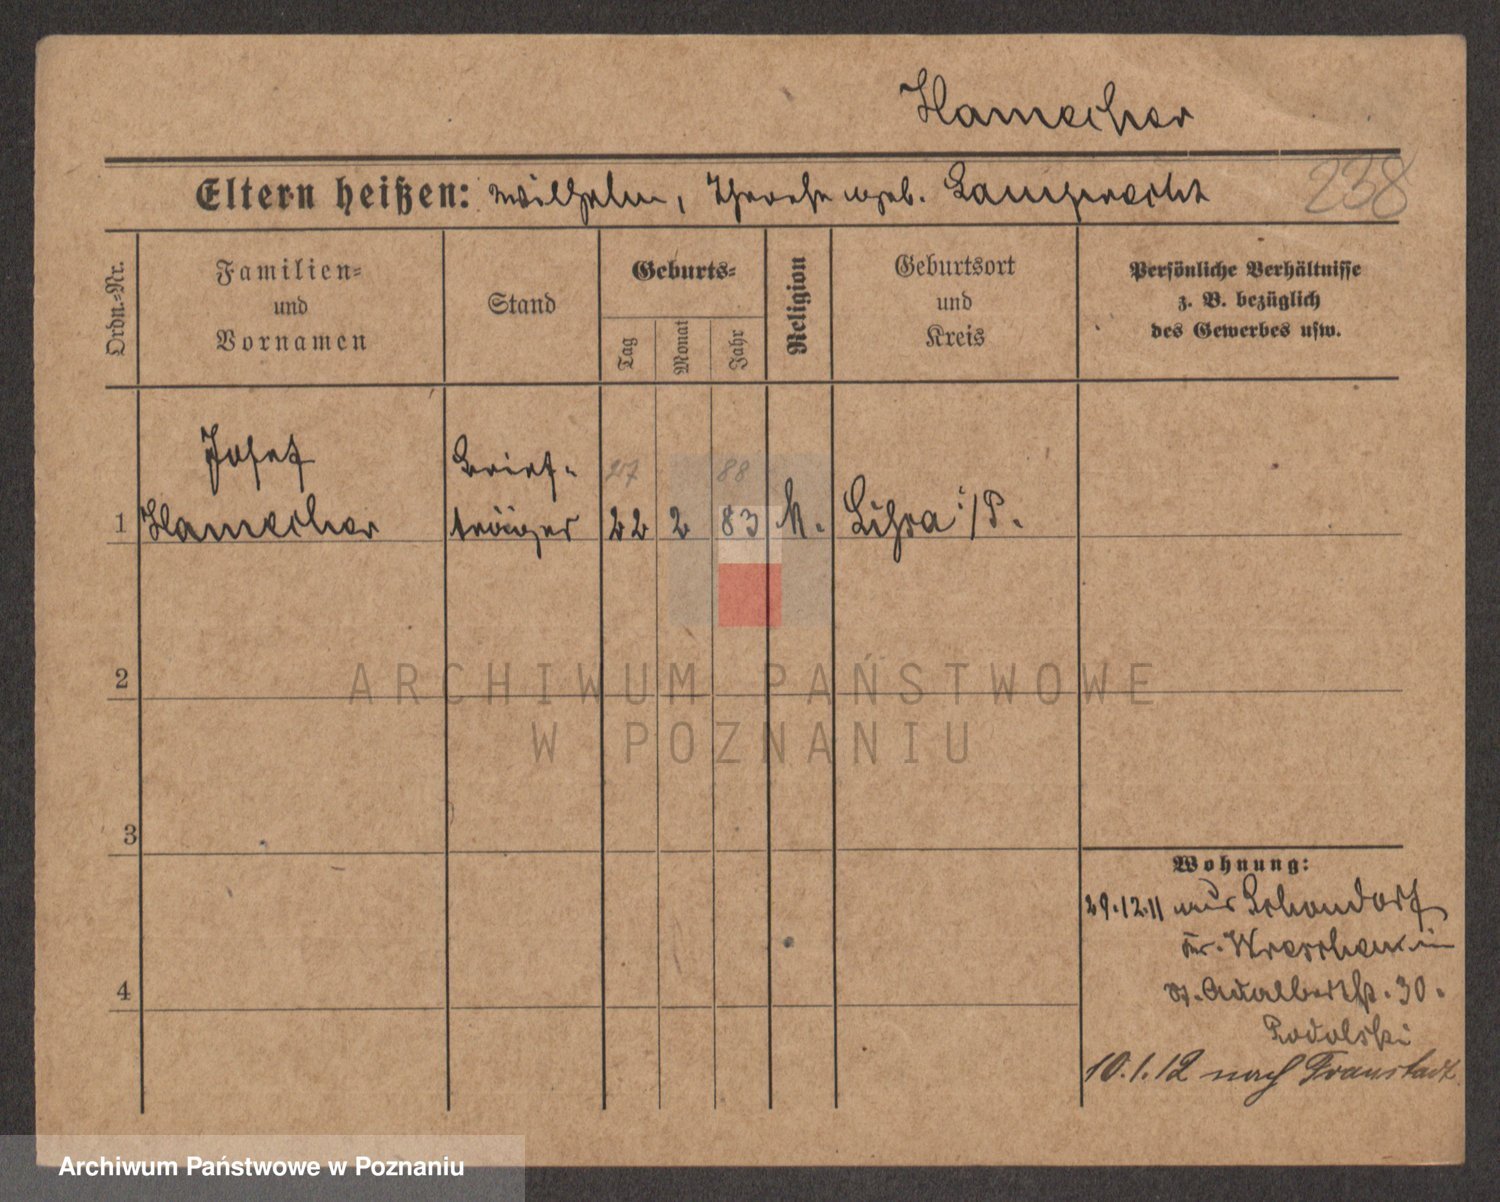 Hamecher
Eltern heißen: Wilhelm, Therese geb. Lamprecht
238
Ordn.-Nr.
Familien-
und
Vornamen
Stand
Geburts-
Tag
Monat
Jahr
Religion
Geburtsort
und
Kreis
Persönliche Verhältnisse
z. B. bezüglich
des Gewerbes usw.
Josef
Brief-
27
88
1
Hamecher
träger
22
2
83
k.
i/P.
ARCHIWUM PAŃSTWOWE
2
W POZNANIU
3
Wohnung:
29.12.11 aus
Kr. Wreschen in
4
St. Adalbertstr. 30.
Podolski
10.1.12 nach Fraustadt
Archiwum Państwowe w Poznaniu